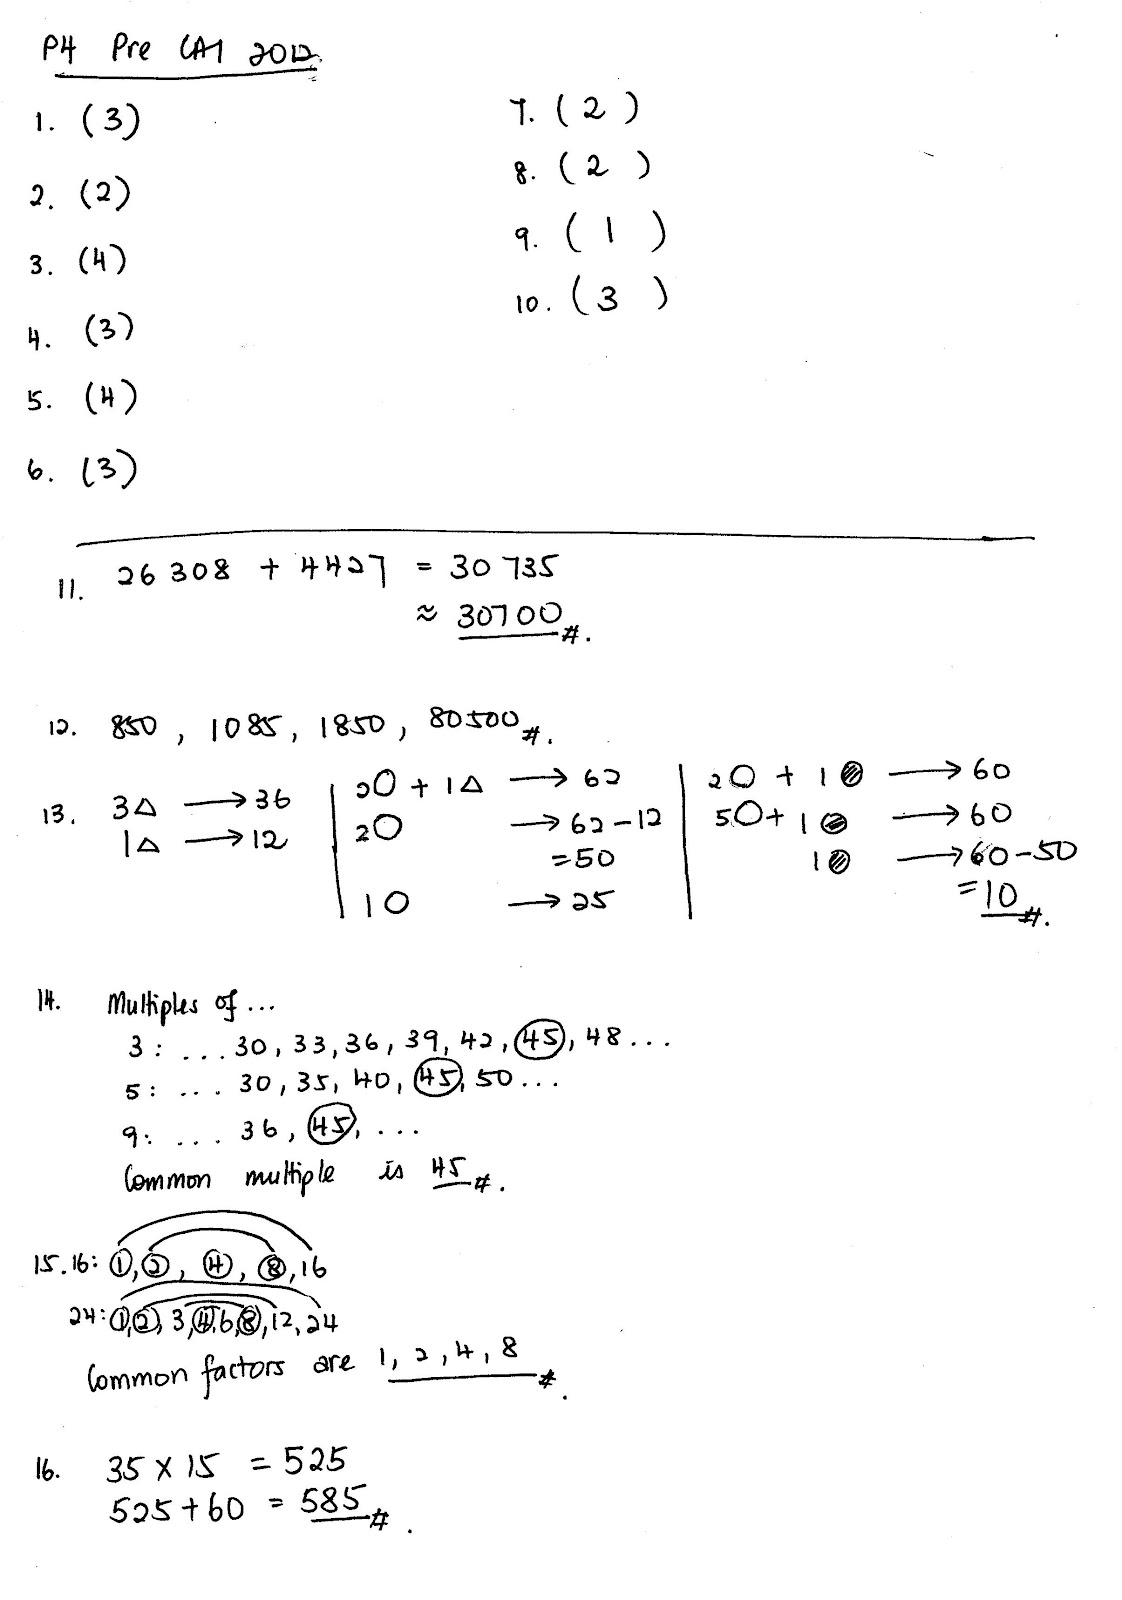 P4 Pre CA1 2012
1. (3)
2. (2)
3. (4)
4. (3)
5. (4)
6. (3)
7. (2)
8. (2)
9. (1)
10. (3)
11. 26 308 + 4427 = 30 735
≈ 30700 #.
12. 850, 1085, 1850, 80500 #.
13. 3△ → 36
1△ → 12
2○ + 1△ → 62
2○ → 62-12
=50
1○ → 25
2○ + 1● → 60
50+ 1● → 60
1● → 60-50
=10 #.
14. Multiples of ...
3: ... 30, 33, 36, 39, 42, 45, 48 ...
5: ... 30, 35, 40, 45, 50 ...
9: ... 36, 45, ...
Common multiple is 45 #.
15. 16: 1, 2, 4, 8, 16
24: 1, 2, 3, 4, 6, 8, 12, 24
Common factors are 1, 2, 4, 8 #.
16. 35 x 15 = 525
525 + 60 = 585 #.